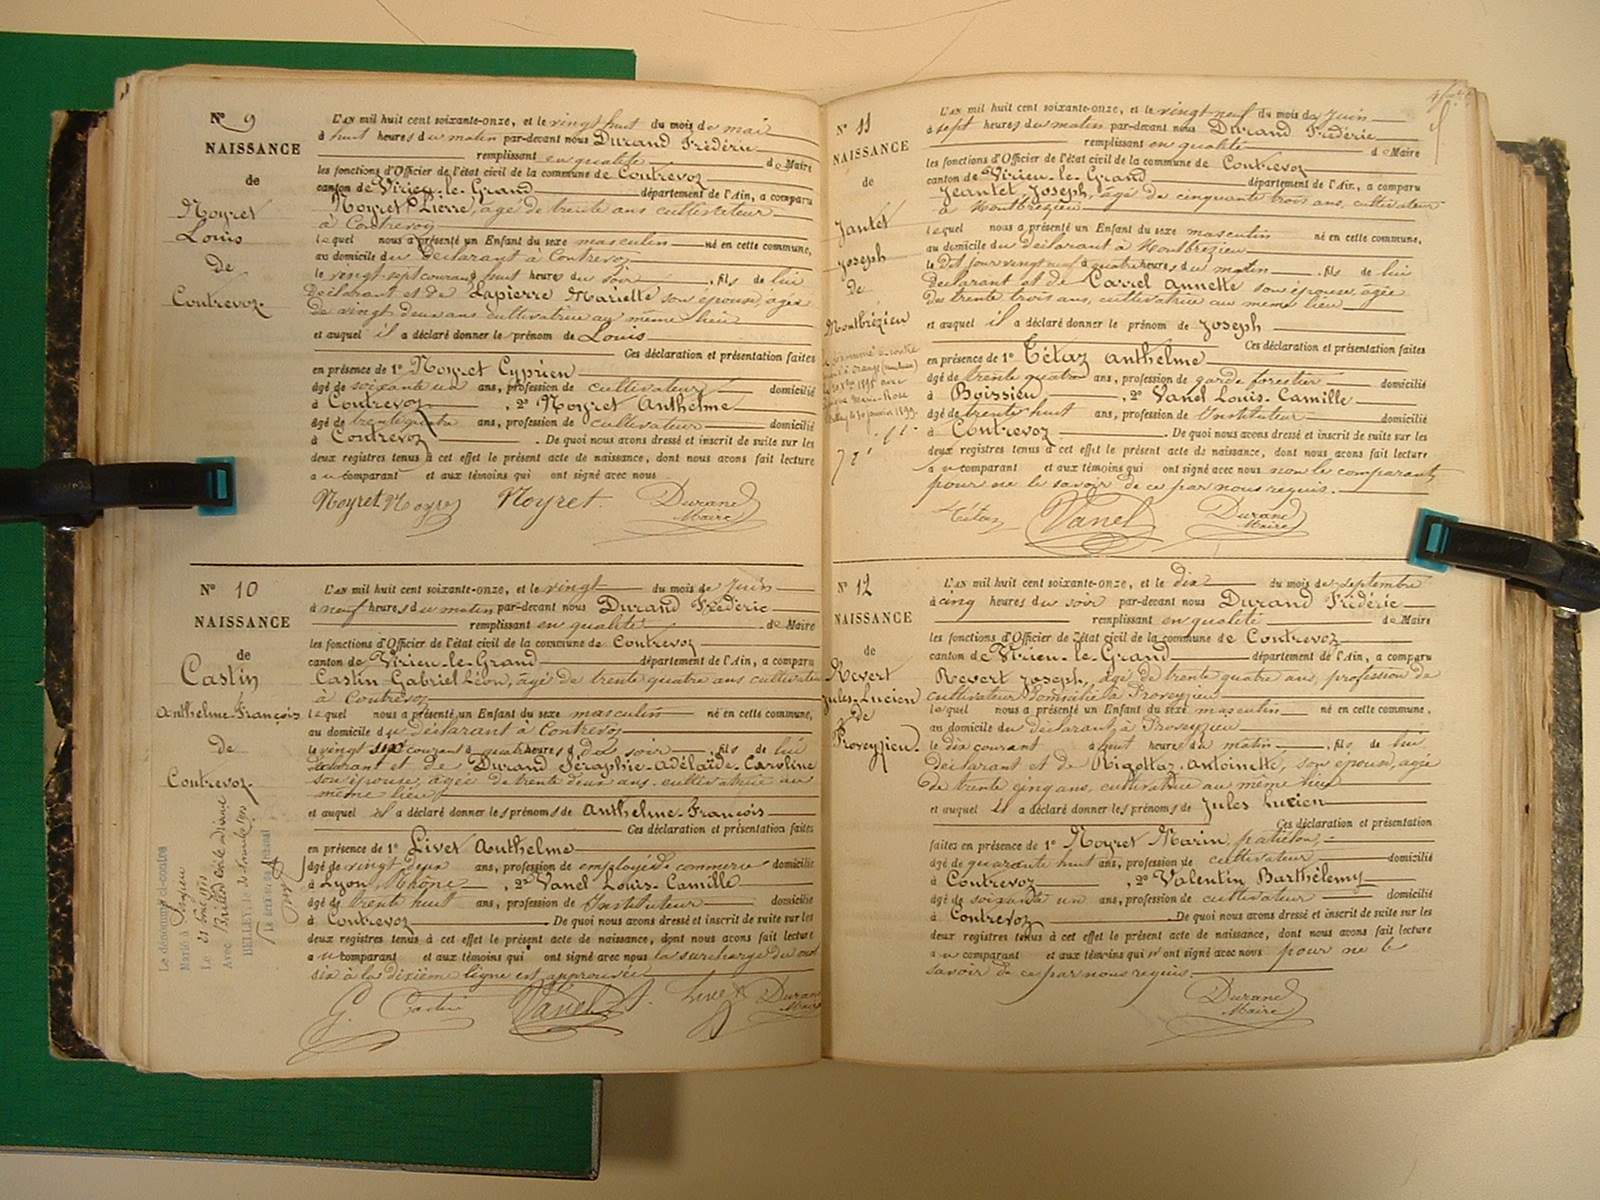 Nº 9
NAISSANCE
de
Noyret
Louis
De
Contrevoz
L'AN mil huit cent soixante-onze, et le vingt huit du mois de mai
à huit heures du matin par-devant nous Durand Frédéric
remplissant en qualité de Maire
les fonctions d'Officier de l'état civil de la commune de Contrevoz
canton de Virieu-le-Grand département de l'Ain, a comparu
Noyret Pierre, âgé de trente ans cultivateur
à Contrevoz
lequel nous a présenté un Enfant du sexe masculin né en cette commune,
au domicile du déclarant à Contrevoz
le vingt sept courant à huit heures du soir, fils de lui
déclarant et de Lapierre Mariette son épouse, âgée
de vingt deux ans cultivatrice au même lieu
et auquel il a déclaré donner le prénom de Louis
Ces déclaration et présentation faites
en présence de 1º Noyret Cyprien
âgé de soixante un ans, profession de cultivateur domicilié
à Contrevoz, 2º Noyret Anthelme
âgé de trente quatre ans, profession de cultivateur domicilié
à Contrevoz. De quoi nous avons dressé et inscrit de suite sur les
deux registres tenus à cet effet le présent acte de naissance, dont nous avons fait lecture
au comparant et aux témoins qui ont signé avec nous
Noyret Noyret Noyret Durand
Maire
Nº 10
NAISSANCE
de
Castin
Anthelme-François
de
Contrevoz
L'AN mil huit cent soixante-onze, et le vingt du mois de Juin
à neuf heures du matin par-devant nous Durand Frédéric
remplissant en qualité de Maire
les fonctions d'Officier de l'état civil de la commune de Contrevoz
canton de Virieu-le-Grand département de l'Ain, a comparu
Castin Gabriel Léon, âgé de trente quatre ans cultivateur
à Contrevoz
lequel nous a présenté un Enfant du sexe masculin né en cette commune,
au domicile du déclarant à Contrevoz
le vingt six courant à quatre heures du soir, fils de lui
déclarant et de Durand Séraphie-Adélaïde-Caroline
son épouse, âgée de trente deux ans, cultivatrice au
même lieu
et auquel il a déclaré donner les prénoms de Anthelme-François
Ces déclaration et présentation faites
en présence de 1º Livet Anthelme
âgé de vingt deux ans, profession de employé de commerce domicilié
à Lyon, Rhône, 2º Vanel Louis-Camille
âgé de trente huit ans, profession de Instituteur domicilié
à Contrevoz. De quoi nous avons dressé et inscrit de suite sur les
deux registres tenus à cet effet le présent acte de naissance, dont nous avons fait lecture
au comparant et aux témoins qui ont signé avec nous la surcharge du mot
six à la dixième ligne est approuvée
G. Castin Vanel Livet Durand
Maire
Le dénommé ci-contre
Marié à
Le
Avec
BELLEY, le
Nº 11
NAISSANCE
de
Jantet
Joseph
De
Montbrézieu
L'AN mil huit cent soixante-onze, et le vingt-neuf du mois de Juin
à sept heures du matin par-devant nous Durand Frédéric
remplissant en qualité de Maire
les fonctions d'Officier de l'état civil de la commune de Contrevoz
canton de Virieu-le-Grand département de l'Ain, a comparu
Jeantet Joseph, âgé de cinquante trois ans, cultivateur
à Montbrézieu
lequel nous a présenté un Enfant du sexe masculin né en cette commune,
au domicile du déclarant à Montbrézieu
le dit jour vingt neuf à quatre heures du matin, fils de lui
déclarant et de Carrel Annette son épouse, âgée
de trente trois ans, cultivatrice au même lieu
et auquel il a déclaré donner le prénom de Joseph
Ces déclaration et présentation faites
en présence de 1º Tétaz Anthelme
âgé de trente quatre ans, profession de garde forestier domicilié
à Boissieu, 2º Vanel Louis-Camille
âgé de trente huit ans, profession de Instituteur domicilié
à Contrevoz. De quoi nous avons dressé et inscrit de suite sur les
deux registres tenus à cet effet le présent acte de naissance, dont nous avons fait lecture
au comparant et aux témoins qui ont signé avec nous non le comparant
pour ne le savoir de ce par nous requis.
Tétaz Vanel Durand
Maire
Nº 12
NAISSANCE
de
Revert
Jules-Lucien
de
Proveyzieu
L'AN mil huit cent soixante-onze, et le dix du mois de Septembre
à cinq heures du soir par-devant nous Durand Frédéric
remplissant en qualité de Maire
les fonctions d'Officier de l'état civil de la commune de Contrevoz
canton de Virieu-le-Grand département de l'Ain, a comparu
Revert Joseph, âgé de trente quatre ans, profession de
cultivateur domicilié à Proveyzieu
lequel nous a présenté un Enfant du sexe masculin né en cette commune,
au domicile du déclarant à Proveyzieu
le dix courant à huit heures du matin, fils de lui
déclarant et de Rigottaz Antoinette, son épouse, âgée
de trente cinq ans, cultivatrice au même lieu
et auquel il a déclaré donner les prénoms de Jules Lucien
Ces déclaration et présentation
faites en présence de 1º Noyret Marin,
âgé de quarante huit ans, profession de cultivateur domicilié
à Contrevoz, 2º Valentin Barthélemy
âgé de soixante un ans, profession de cultivateur domicilié
à Contrevoz. De quoi nous avons dressé et inscrit de suite sur les
deux registres tenus à cet effet le présent acte de naissance, dont nous avons fait lecture
au comparant et aux témoins qui n'ont signé avec nous pour ne le
savoir de ce par nous requis
Durand
Maire